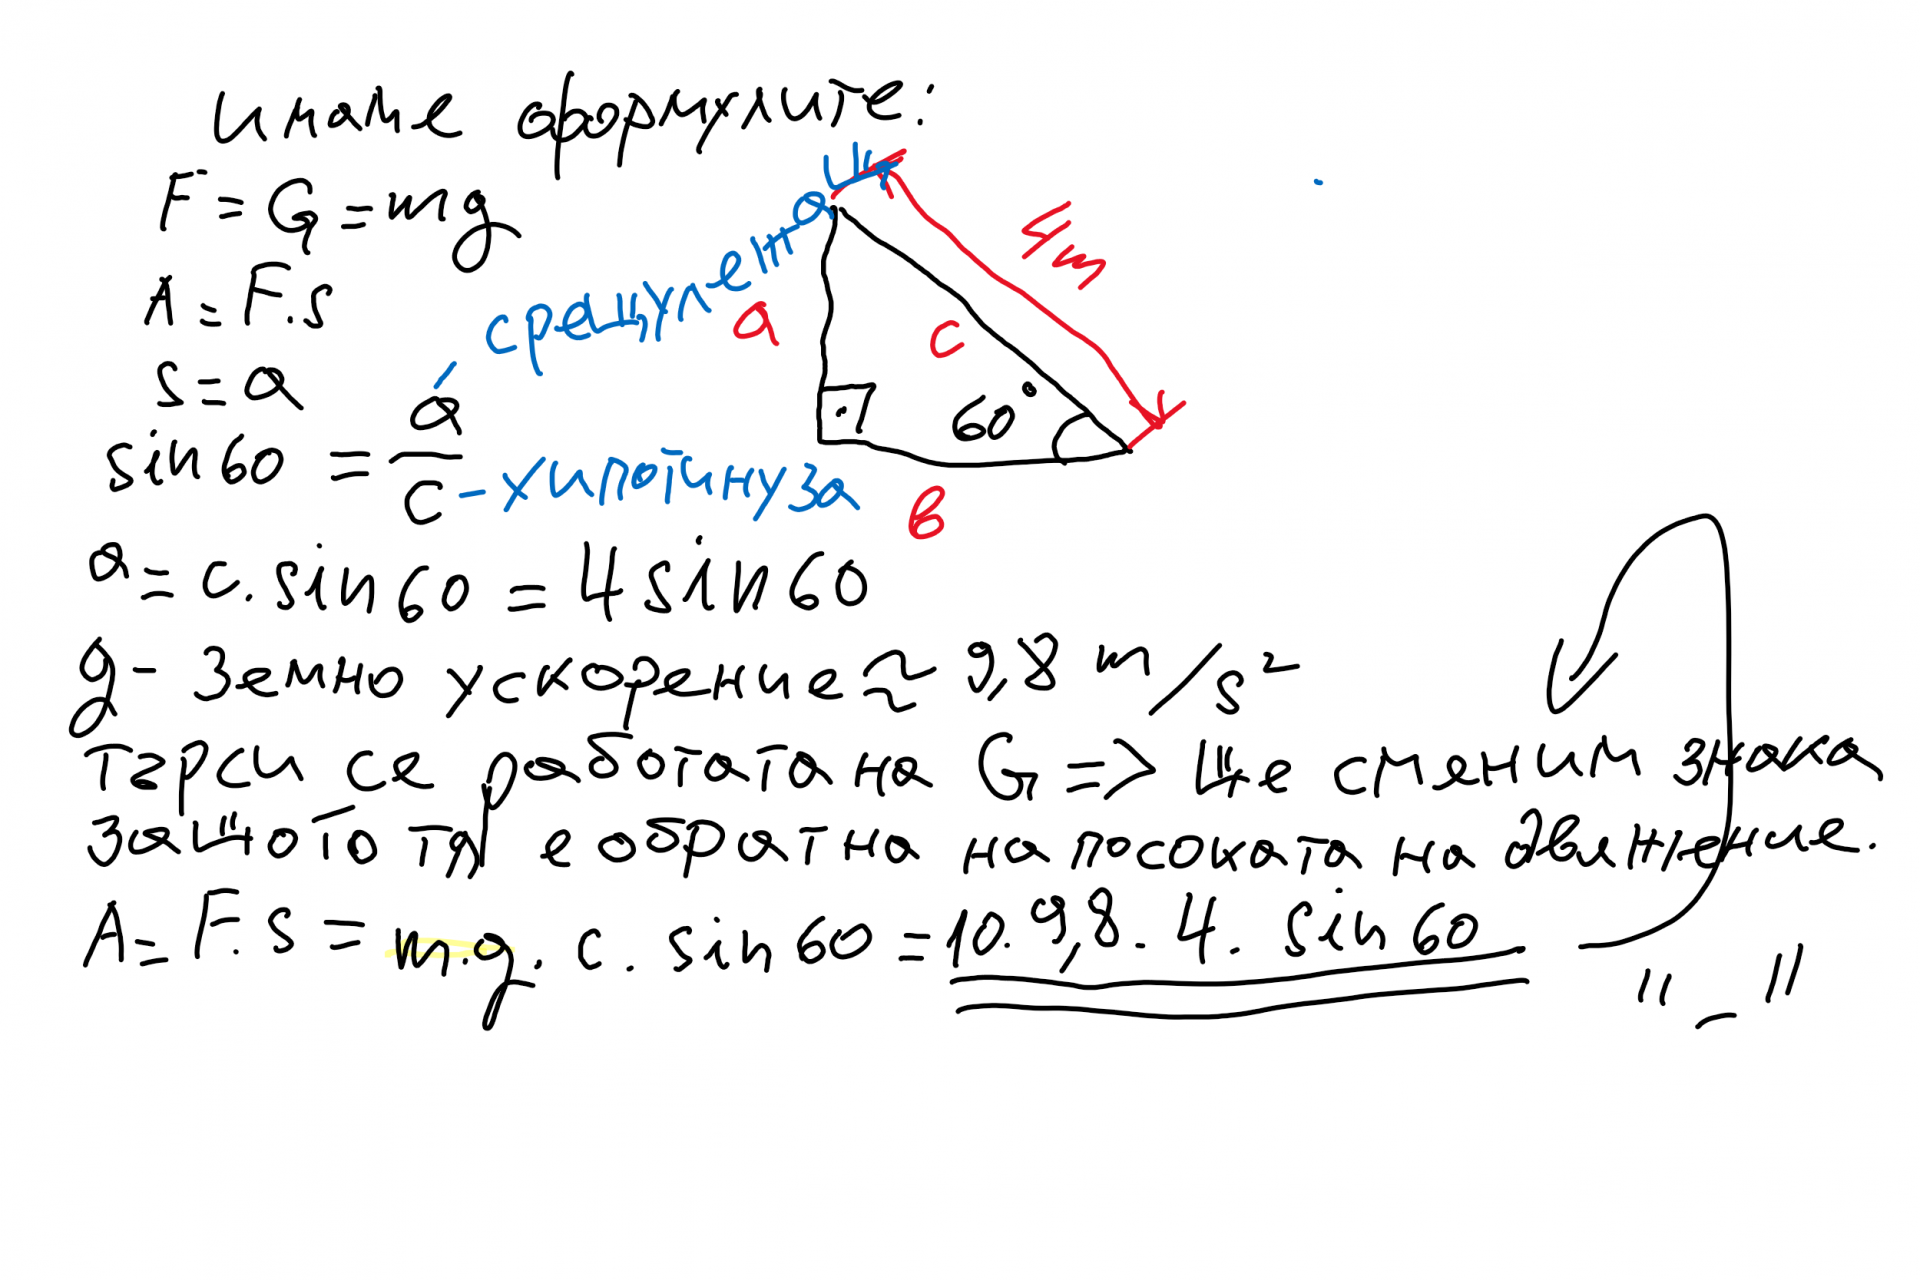 имаме формулите:
F = G = mg
A = F.s
s = a
sin 60 = a/c
срещулежаща
- хипотинуза
a
c
в
60°
4m
a = c. sin 60 = 4 sin 60
g - земно ускорение ≈ 9,8 m/s²
търси се работата на G => ще сменим знака
защото тя е обратна на посоката на движение.
A = F.s = m.g. c. sin 60 = 10. 9,8. 4. sin 60
" - "